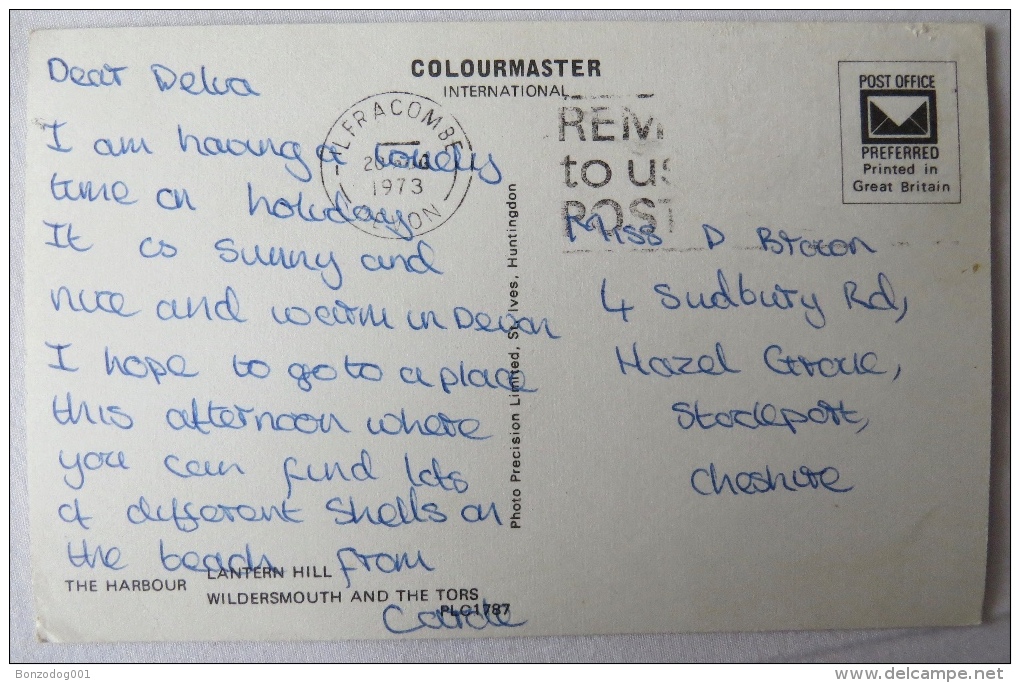 Dear Delva
I am having a lovely
time on holiday
It is sunny and
nice and warm in Devon
I hope to go to a place
this afternoon where
you can find lots
of different shells on
the beach from
Carole
COLOURMASTER
INTERNATIONAL
ILFRACOMBE
1973
DEVON
REM
to us
POST
POST OFFICE
PREFERRED
Printed in
Great Britain
Miss D Brown
4 Sudbury Rd,
Hazel Grove,
Stockport,
Cheshire
Photo Precision Limited, St. Ives, Huntingdon
THE HARBOUR LANTERN HILL
WILDERSMOUTH AND THE TORS
PLC1787
Bonzodog001
delcampe.net